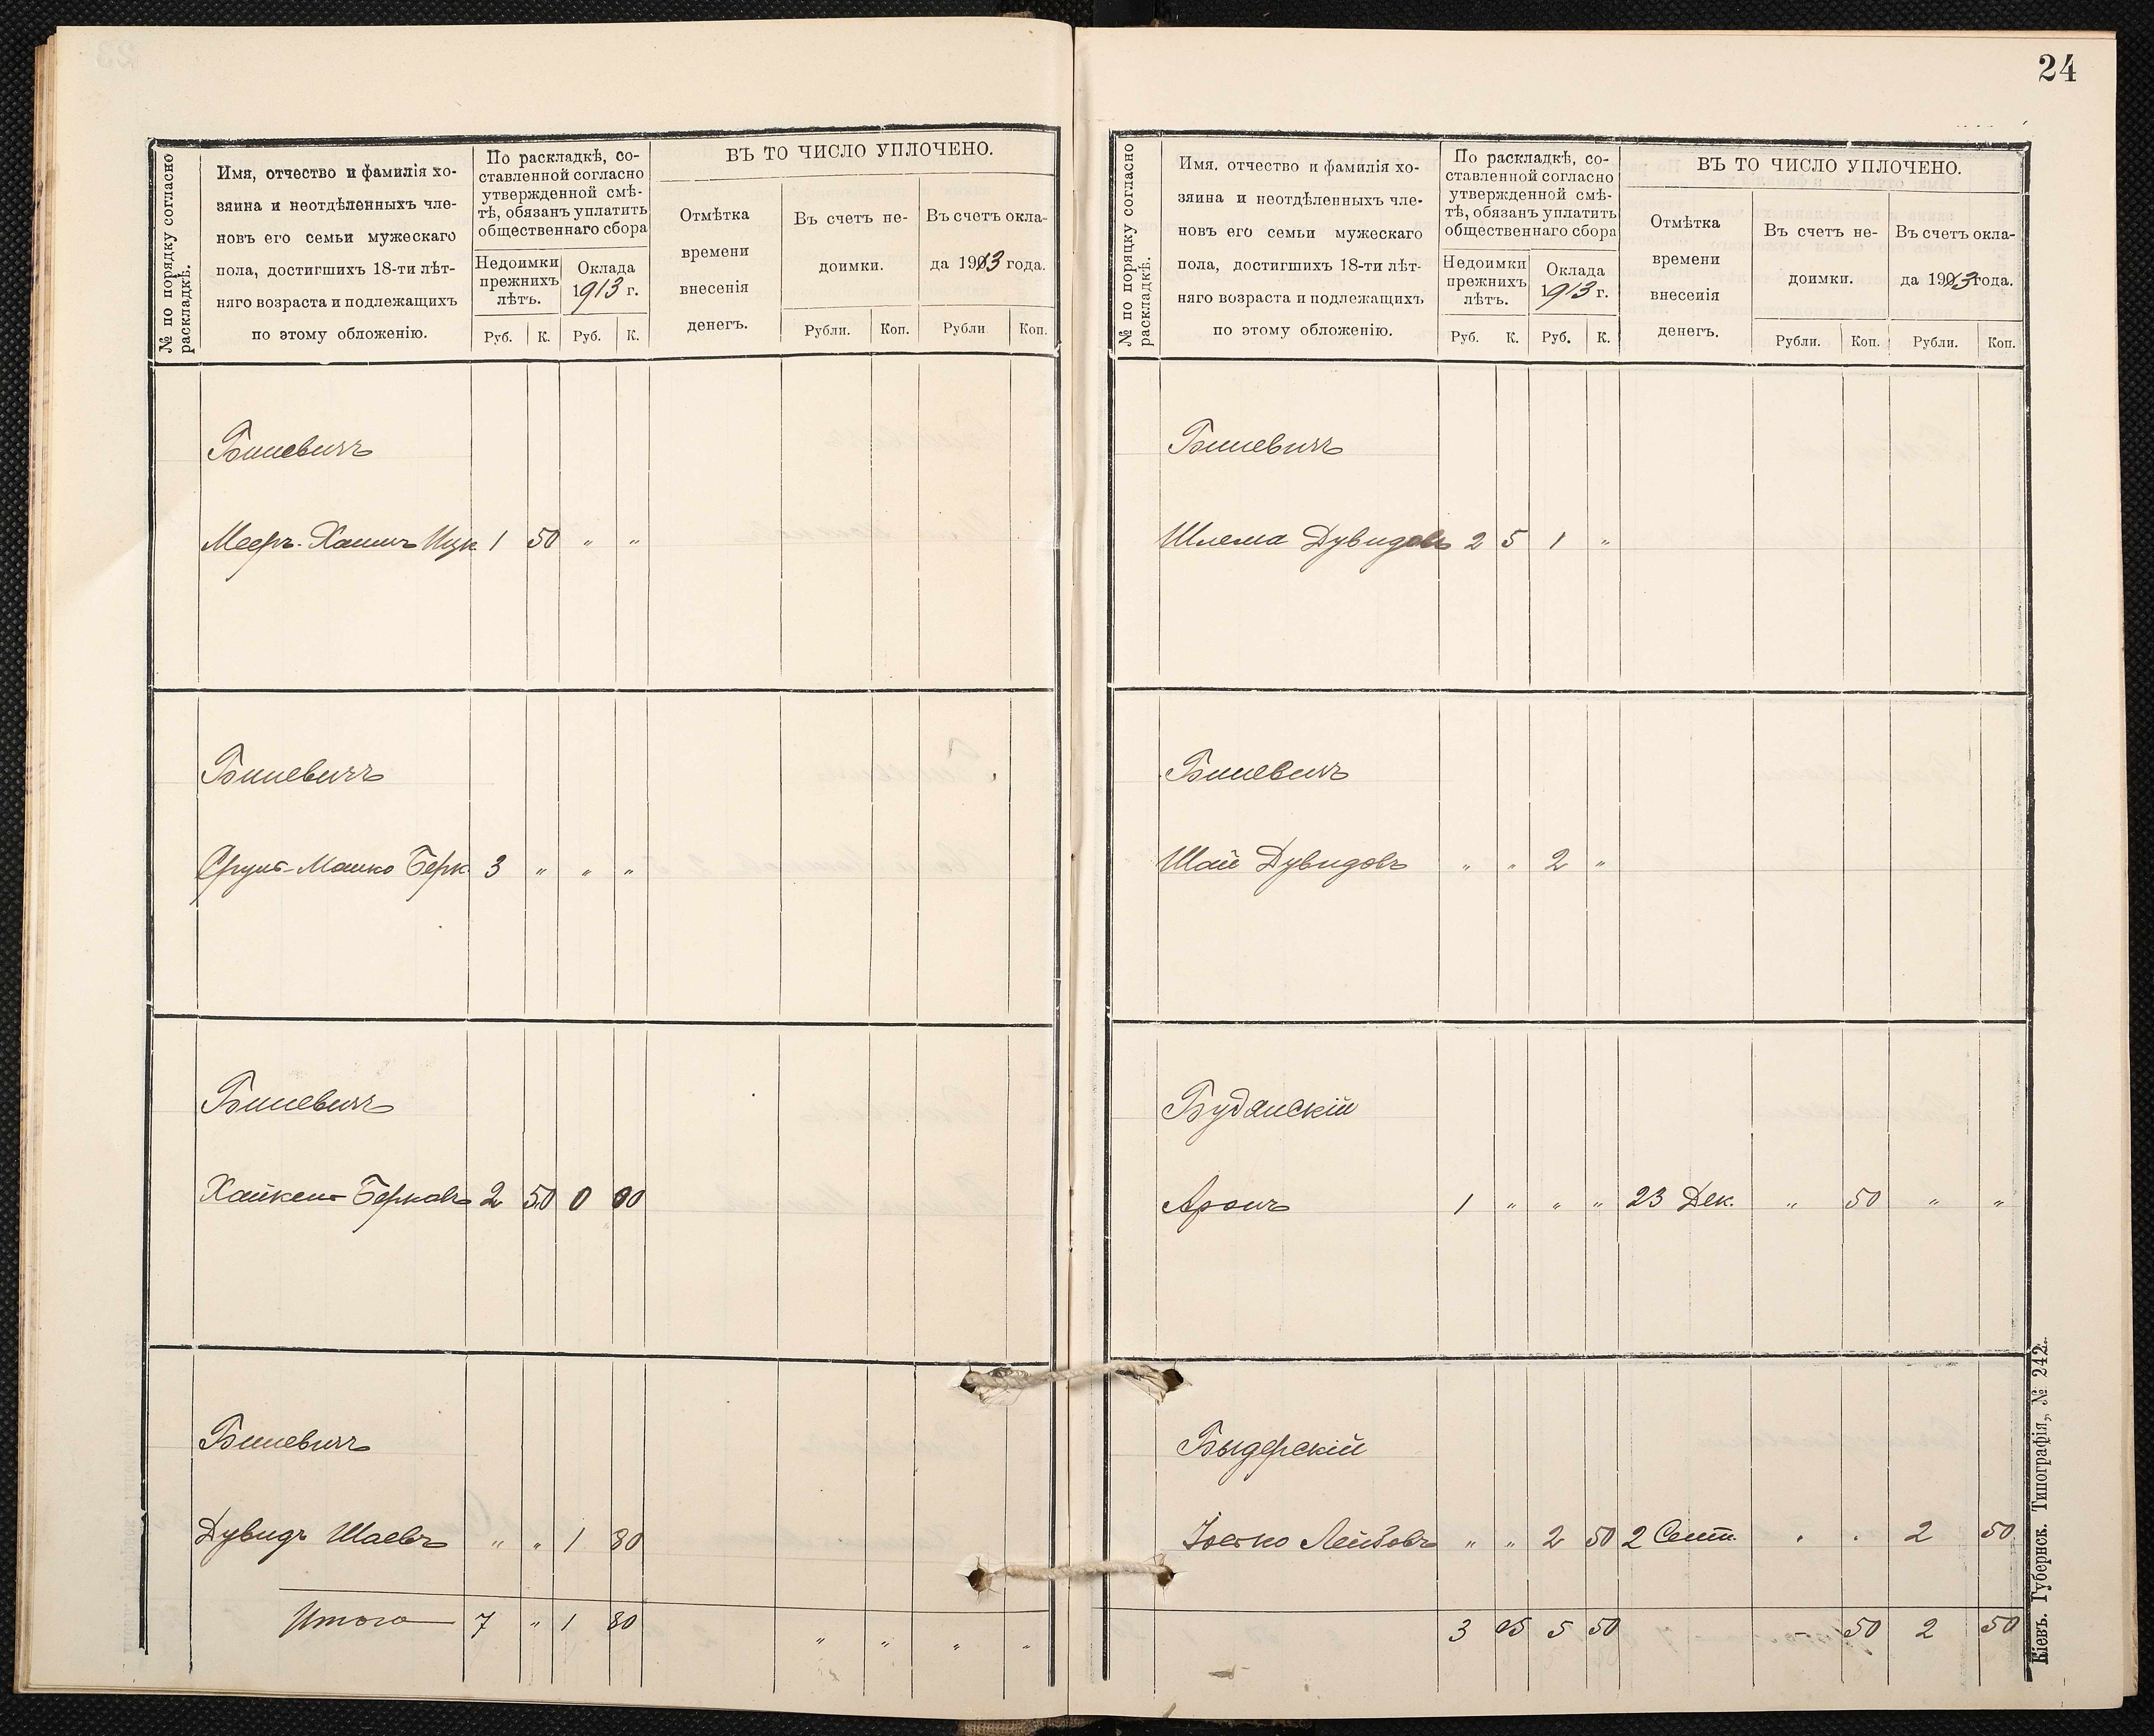 24
№ по порядку согласно раскладкѣ.
Имя, отчество и фамилія хо-
зяина и неотдѣленныхъ чле-
новъ его семьи мужескаго
пола, достигшихъ 18-ти лѣт-
няго возраста и подлежащихъ
по этому обложенію.
По раскладкѣ, со-
ставленной согласно
утвержденной смѣ-
тѣ, обязанъ уплатить
общественнаго сбора
Недоимки
прежнихъ
лѣтъ.
Оклада
1913 г.
Руб. К. Руб. К.
ВЪ ТО ЧИСЛО УПЛОЧЕНО.
Отмѣтка
времени
внесенія
денегъ.
Въ счетъ не-
доимки.
Въ счетъ окла-
да 1913 года.
Рубли. Коп. Рубли Коп.
Биневичъ
Мееръ-Хаимъ Ицк 1 50 " "
Биневичъ
Сруль-Мошко Берк. 3 " " "
Биневичъ
Хайкель Берковъ 2 50 0 00
Биневичъ
Дувидъ Шаевъ " " 1 80
Итого 7 " 1 80 " " " "
№ по порядку согласно раскладкѣ.
Имя, отчество и фамилія хо-
зяина и неотдѣленныхъ чле-
новъ его семьи мужескаго
пола, достигшихъ 18-ти лѣт-
няго возраста и подлежащихъ
по этому обложенію.
По раскладкѣ, со-
ставленной согласно
утвержденной смѣ-
тѣ, обязанъ уплатить
общественнаго сбора
Недоимки
прежнихъ
лѣтъ.
Оклада
1913 г.
Руб. К. Руб. К.
ВЪ ТО ЧИСЛО УПЛОЧЕНО.
Отмѣтка
времени
внесенія
денегъ.
Въ счетъ не-
доимки.
Въ счетъ окла-
да 1913 года.
Рубли. Коп. Рубли. Коп.
Биневичъ
Шлема Дувидовъ 2 5 1 "
Биневичъ
Шая Дувидовъ " " 2 "
Буданскій
Аронъ 1 " " " 23 Дек. " 50 " "
Быдерскій
Іосько Лейбовъ " " 2 50 2 Сент. " " 2 50
3 05 5 50 50 2 50
Кіевъ. Губернск. Типографія, № 242.